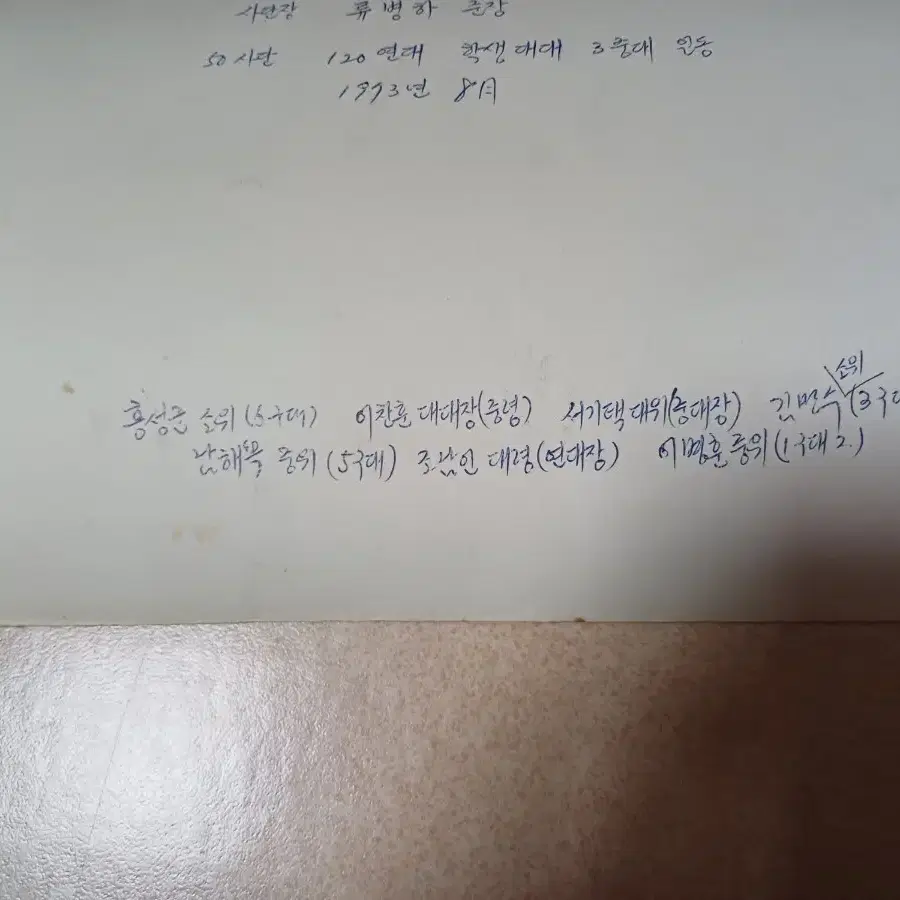 사단장 류병하 준장
50사단 120연대 학생대대 3중대 일동
1993년 8月
소위
홍성준 소위 (5구대) 이찬훈 대대장(중령) 서기택 대위(중대장) 김민수 (3구대
남해목 중위 (5구대) 조남인 대령(연대장) 이병훈 중위 (1구대 2.)